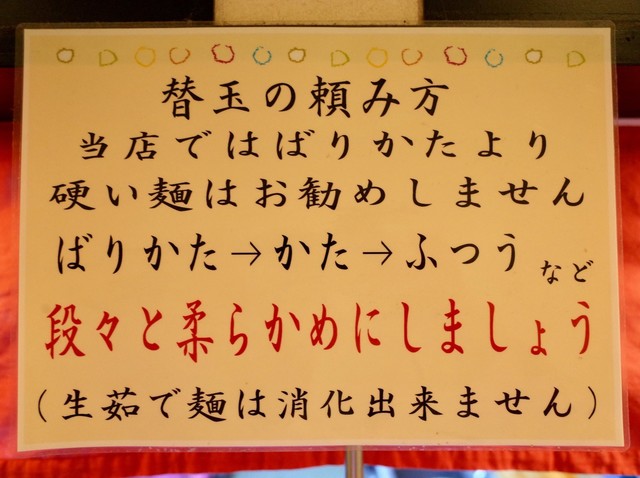 替玉の頼み方
当店ではばりかたより
硬い麺はお勧めしません
ばりかた→かた→ふつう など
段々と柔らかめにしましょう
(生茹で麺は消化出来ません)